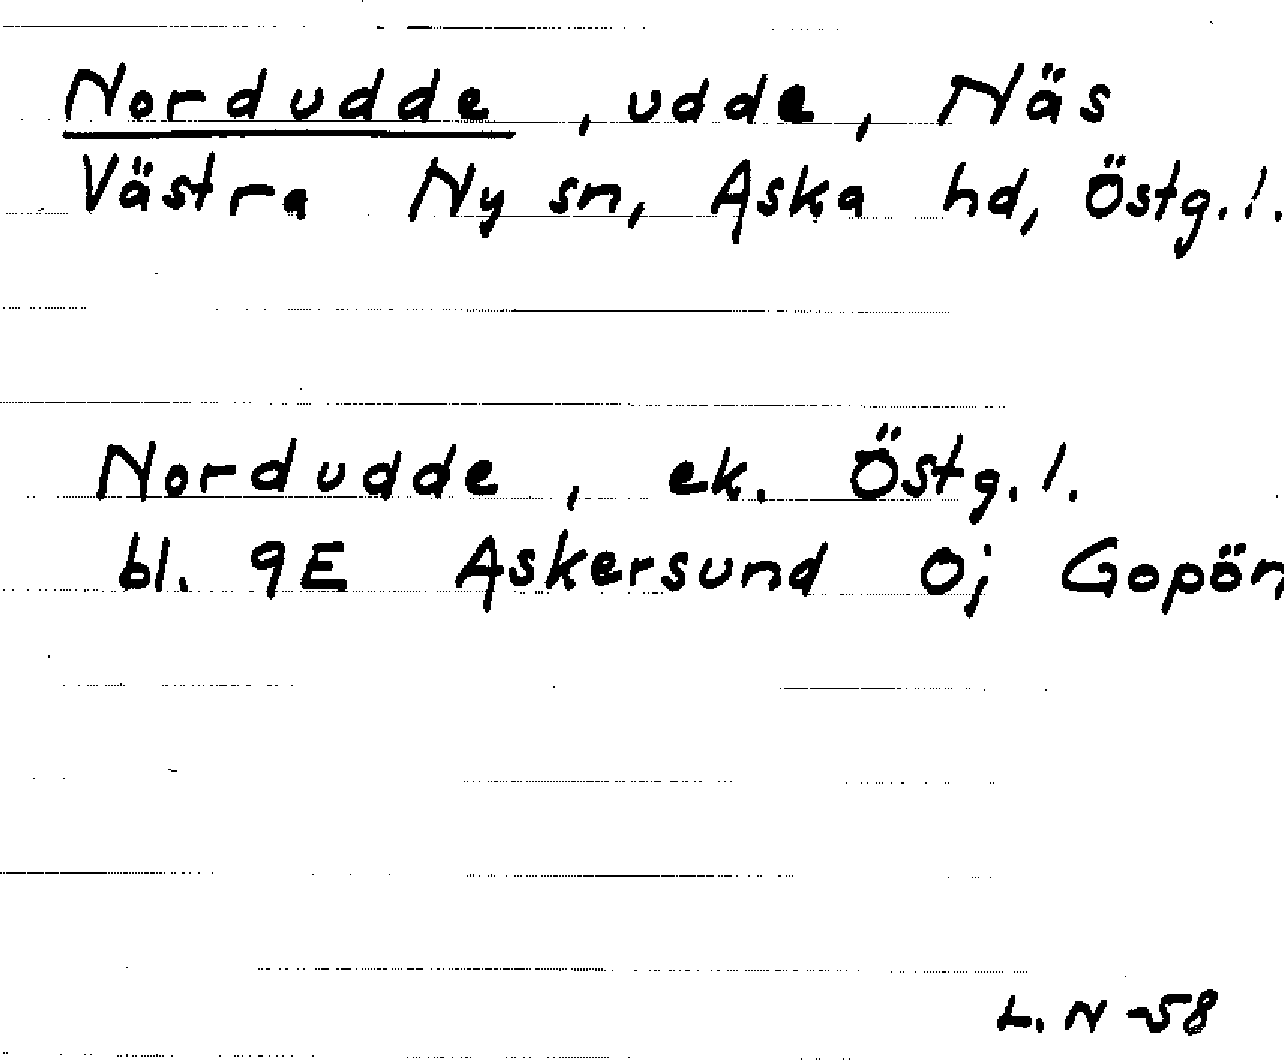 Nordudde, udde, Näs
Västra Ny sn, Aska hd, Östg. l.
Nordudde, ek. Östg. l.
bl. 9E Askersund Oj Gopön
L. N -58